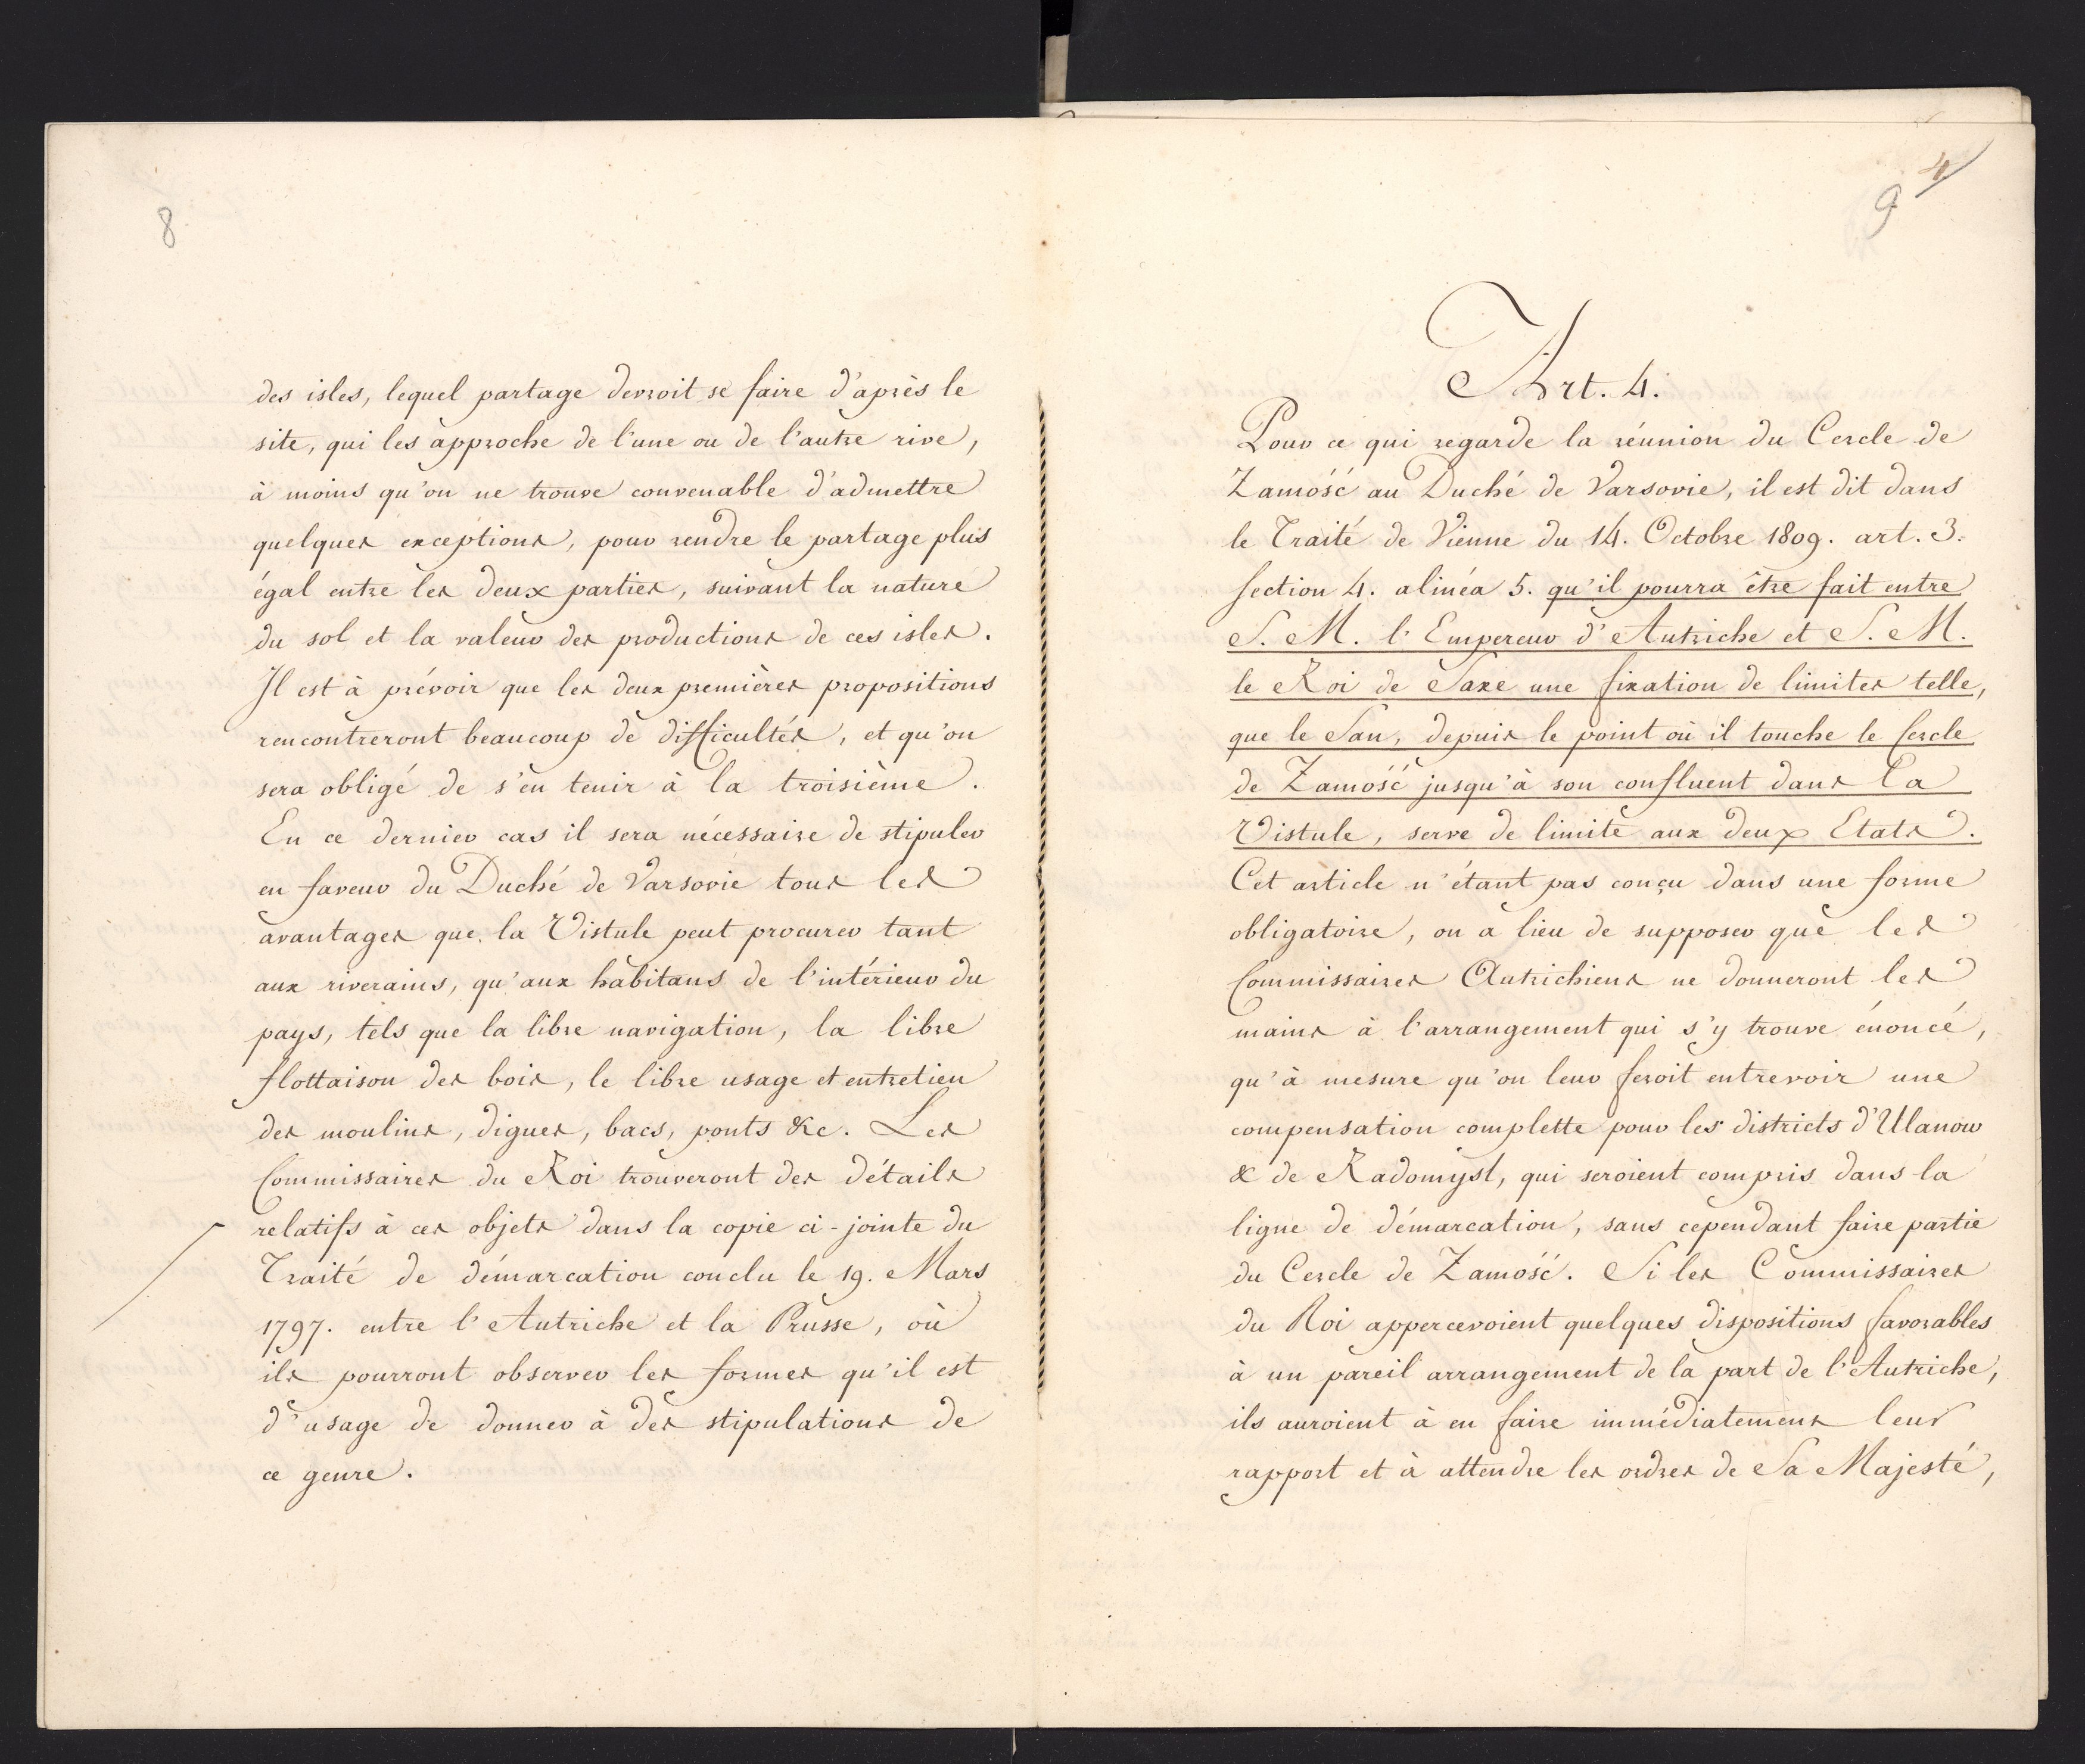 8
des isles, lequel partage devroit se faire d'après le
site, qui les approche de l'une ou de l'autre rive,
à moins qu'on ne trouve convenable d'admettre
quelques exceptions, pour rendre le partage plus
égal entre les deux parties, suivant la nature
du sol et la valeur des productions de ces isles.
Il est à prévoir que les deux premières propositions
rencontreront beaucoup de difficultés, et qu'on
sera obligé de s'en tenir à la troisième.
En ce dernier cas il sera nécessaire de stipuler
en faveur du Duché de Varsovie tous les
avantages que la Vistule peut procurer tant
aux riverains, qu'aux habitans de l'intérieur du
pays, tels que la libre navigation, la libre
flottaison des bois, le libre usage et entretien
des moulins, digues, bacs, ponts &c. Les
Commissaires du Roi trouveront des détails
relatifs à ces objets dans la copie ci-jointe du
Traité de démarcation conclu le 19. Mars
1797. entre l'Autriche et la Prusse, où
ils pourront observer les formes qu'il est
d'usage de donner à des stipulations de
ce genre.
4
9
Art. 4.
Pour ce qui regarde la réunion du Cercle de
Zamość au Duché de Varsovie, il est dit dans
le Traité de Vienne du 14. Octobre 1809. art. 3.
section 4. alinéa 5. qu'il pourra être fait entre
S. M. l'Empereur d'Autriche et S. M.
le Roi de Saxe une fixation de limites telle,
que le San, depuis le point où il touche le Cercle
de Zamość jusqu'à son confluent dans la
Vistule, serve de limite aux deux Etats.
Cet article n'étant pas conçu dans une forme
obligatoire, on a lieu de supposer que les
Commissaires Autrichiens ne donneront les
mains à l'arrangement qui s'y trouve énoncé,
qu'à mesure qu'on leur feroit entrevoir une
compensation complette pour les districts d'Ulanow
& de Radomysl, qui seroient compris dans la
ligne de démarcation, sans cependant faire partie
du Cercle de Zamość. Si les Commissaires
du Roi appercevoient quelques dispositions favorables
à un pareil arrangement de la part de l'Autriche,
ils auroient à en faire immédiatement leur
rapport et à attendre les ordres de Sa Majesté,